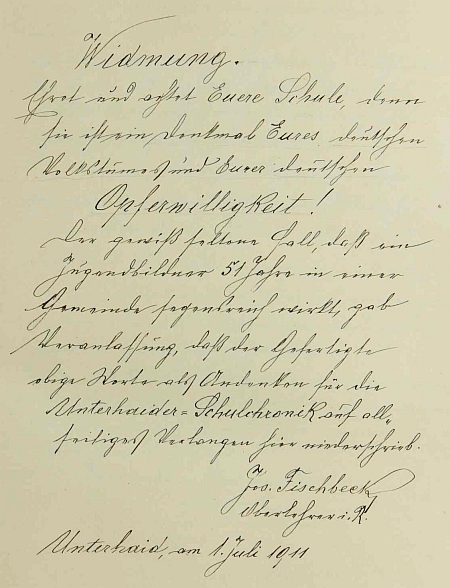 Widmung.
Ehret und achtet Euere Schule, denn
sie ist ein Denkmal Eures deutschen
Volkstumes und Eurer deutschen
Opferwilligkeit!
Der gewiß seltene Fall, daß ein
Jugendbildner 51 Jahre in einer
Gemeinde segensreich wirkt, gab
Veranlassung, daß der Gefertigte
obige Worte als Andenken für die
Unterhaider=Schulchronik auf all„
seitiges Verlangen hier niederschrieb.
Jos. Fischbeck
Oberlehrer i. R.
Unterhaid, am 1. Juli 1911